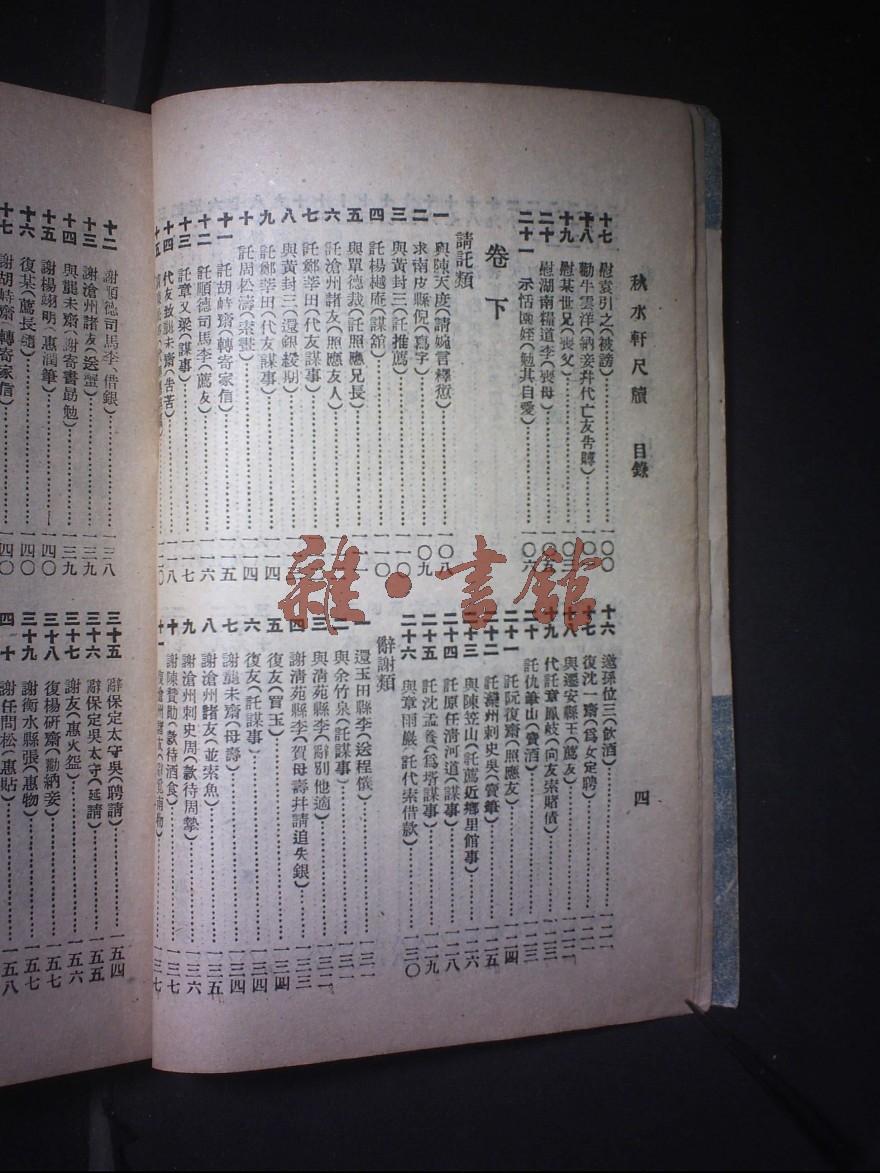 秋水軒尺牘 目錄 四
十七 慰袁引之(被謗)………一〇〇
十八 勸牛雲洋(納妾幷代亡友吿賻)………一〇〇
十九 慰某世兄(喪父)………一〇三
二十 慰湖南糧道李(喪母)………一〇五
二十一 示恬園姪(勉其自愛)………一〇六
卷下
請託類
一 與陳天度(請婉言釋愆)………一〇八
二 求南皮縣倪(寫字)………一〇九
三 與黃封三(託推薦)………一一〇
四 託楊樾庵(謀舘)………一一〇
五 與單德裁(託照應兄長)………一一
六 託滄州諸友(照應友人)………一一
七 託鄭莘田(代友謀事)………一一
八 與黃封三(還銀緩期)………一一
九 託鄭莘田(代友謀事)………一一四
十 託周松濤(索豐)………一一四
十一 託胡峙齋(轉寄家信)………一一五
十二 託順德司馬李(薦友)………一一六
十三 託章又梁(謀事)………一一七
十四 代友致龔未齋(吿苦)………一一八
十五………一二〇
十六 邀孫位三(飮酒)………一二一
十七 復沈一齋(爲女定聘)………一二一
十八 與遷安縣王(薦友)………一二二
十九 代託章鳳岐(向友索賭債)………一二三
二十 託仇筆山(賣酒)………一二三
二十一 託阮復齋(照應友)………一二四
二十二 託灤州刺史吳(賣筆)………一二五
二十三 與陳笠山(託薦近鄕里館事)………一二六
二十四 託原任淸河道(謀事)………一二八
二十五 託沈孟養(爲塔謀事)………一二九
二十六 與章雨嚴(託代索借款)………一三〇
辭謝類
一 還玉田縣李(送程儀)………一三一
二 與余竹泉(託謀事)………一三一
三 與淸苑縣李(辭別他適)………一三二
四 謝淸苑縣李(賀母壽幷請追失銀)………一三三
五 復友(買玉)………一三四
六 復友(託謀事)………一三四
七 謝龔未齋(母壽)………一三四
八 謝滄州諸友(並索魚)………一三五
九 謝滄州刺史周(款待周摯)………一三六
十 謝陳贊勛(款待酒食)………一三七
十一………一三七
十二 謝順德司馬李(借銀)………一三八
十三 謝滄州諸友(送蟹)………一三九
十四 與龔未齋(謝寄書勗勉)………一三九
十五 謝楊翊明(惠潤筆)………一四〇
十六 復某(薦長隨)………一四〇
十七 謝胡峙齋(轉寄家信)………一四〇
三十五 辭保定吳太守(聘請)………一五四
三十六 辭保定太守吳(延請)………一五五
三十七 謝友(惠火盌)………一五六
三十八 復楊硏齋(勸納妾)………一五七
三十九 謝衡水縣張(惠物)………一五七
四十 謝任問松(惠貼)………一五八
雜·書館